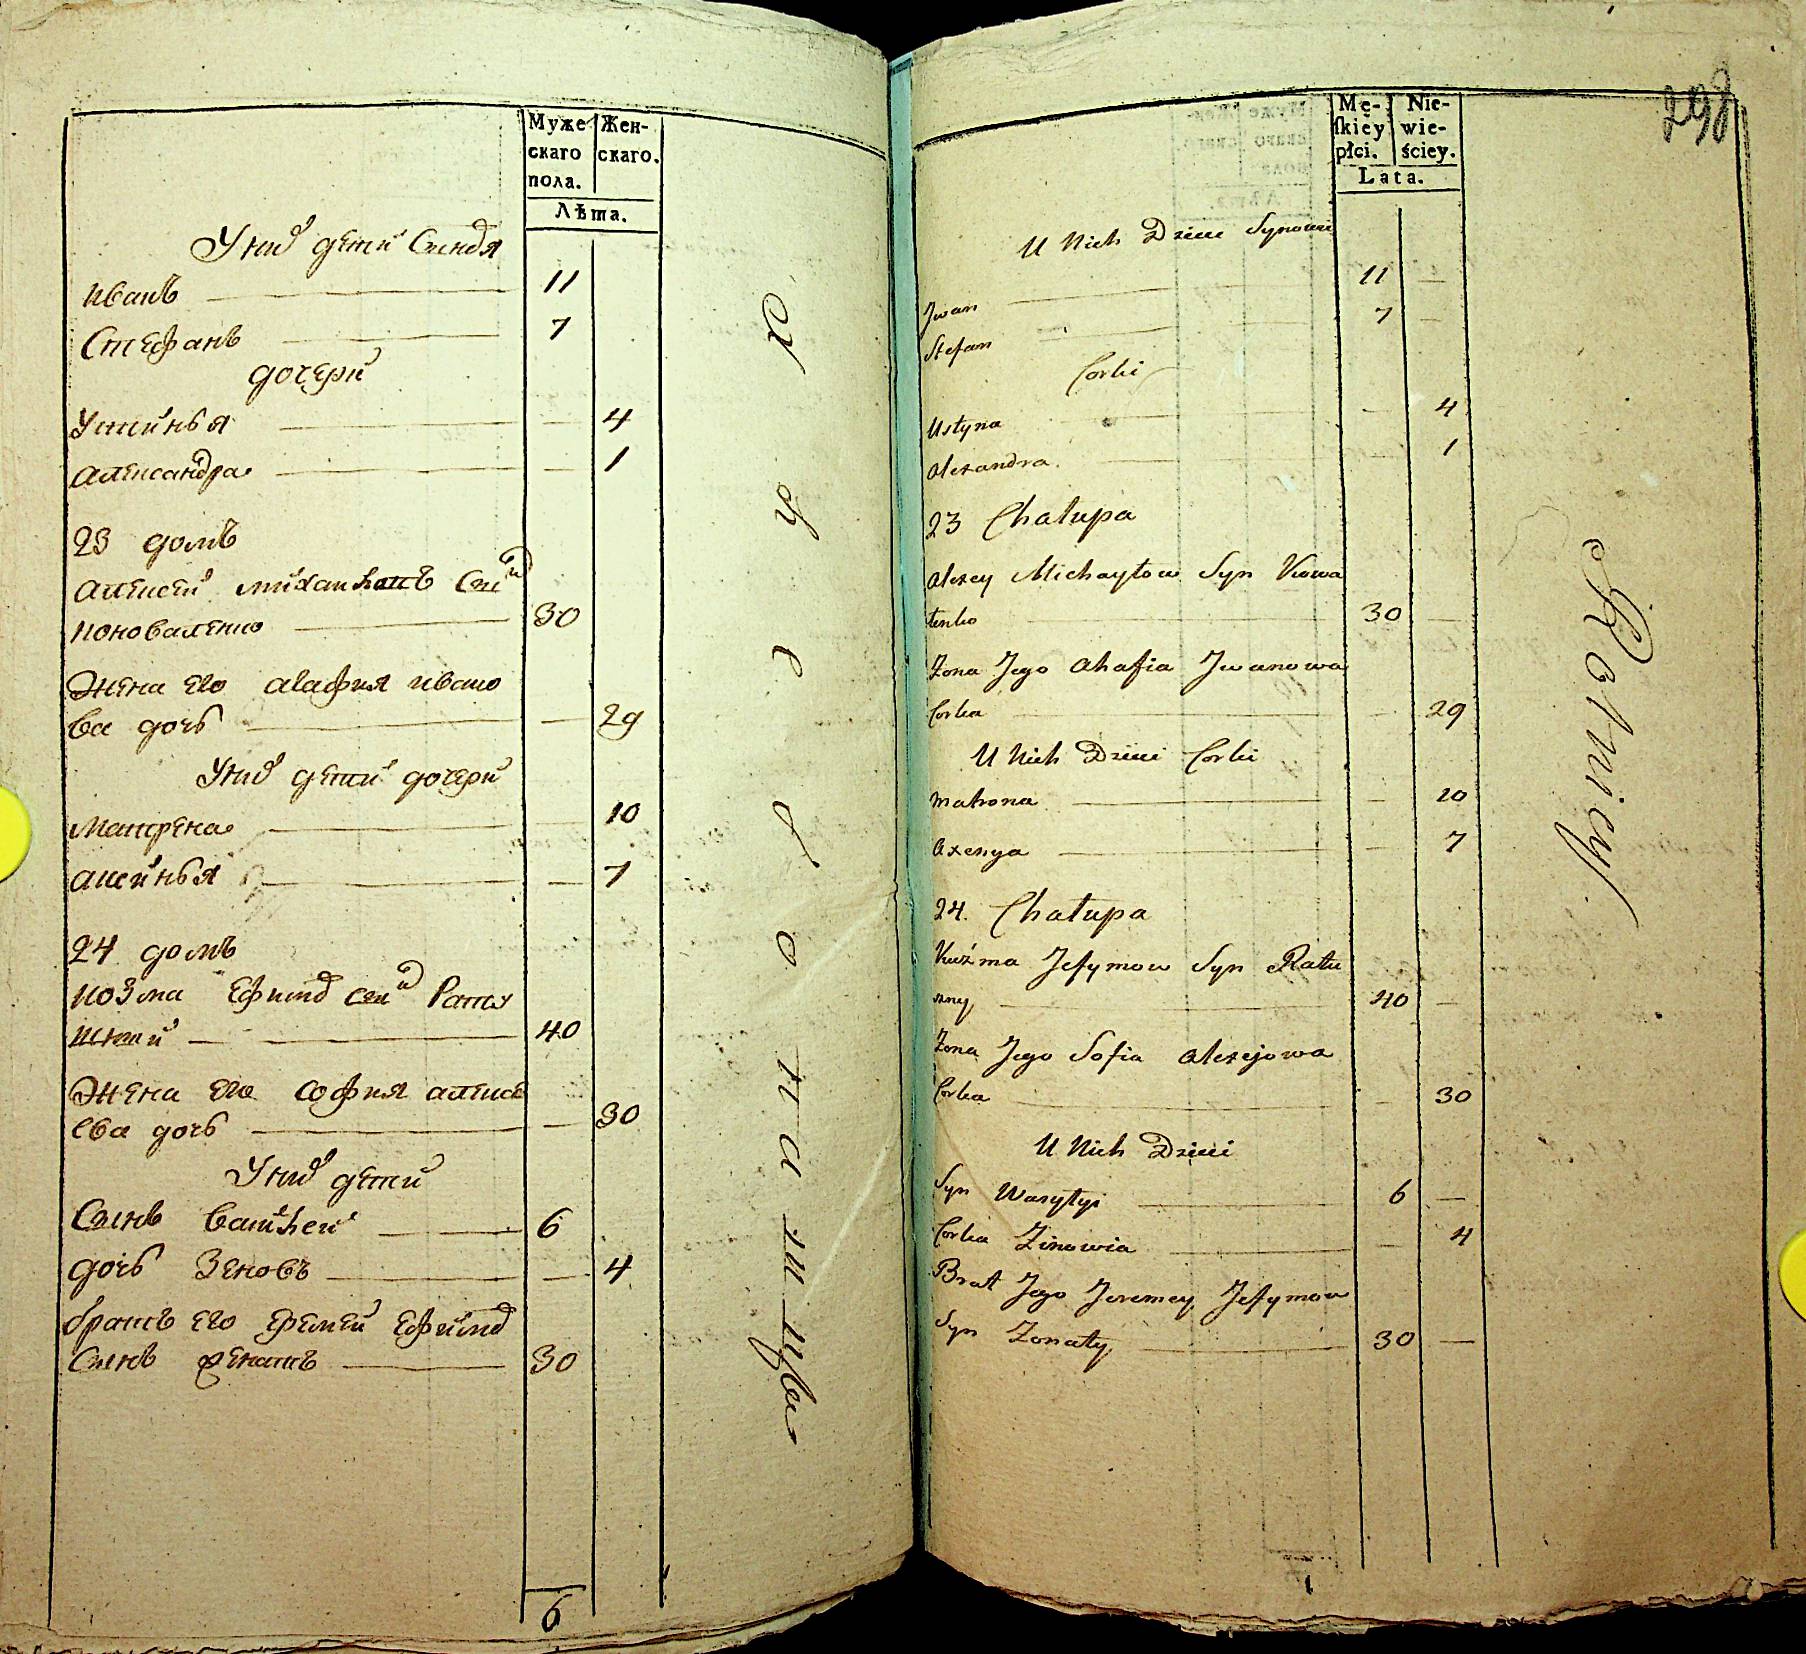 Муже
скаго
пола.
Жен-
скаго.
Лѣта.
У них дети Синовя
иванъ 11
Стефанъ 7
дочери
Устинья — 4
александра — 1
23 домъ
алексей михаиловъ Сын
коноваленко 30
жена его агафия ивано
ва дочь — 29
У них дети дочери
Матрена 10
аксинья — 7
24 домъ
козма Ефимов син Рату
шный 40
жена его софия алексе
ева дочь — 30
У них дети
Синъ василей 6
дочь Зеновъ — 4
братъ его еремей Ефимов
Синъ 30
6
298
Mę-
ſkiey
płci.
Nie-
wie-
ściey.
Lata.
U Nich Dzieci Synowie
Jwan 11 —
Stefan 7 —
Corki
Ustyna — 4
Alexandra — 1
23 Chałupa
Alexey Michayłow Syn Kowa
lenko 30 —
Żona Jego Ahafia Jwanowa
Corka — 29
U Nich Dzieci Corki
Matrona — 10
Axenya — 7
24. Chałupa
Kuźma Jefymow Syn Ratu
szny 40 —
Żona Jego Sofia Alexejowa
Corka — 30
U Nich Dzieci
Syn Wasyłyi 6 —
Corka Zinowia — 4
Brat Jego Jeremey Jefymow
Syn Zonaty 30 —
Rolniey